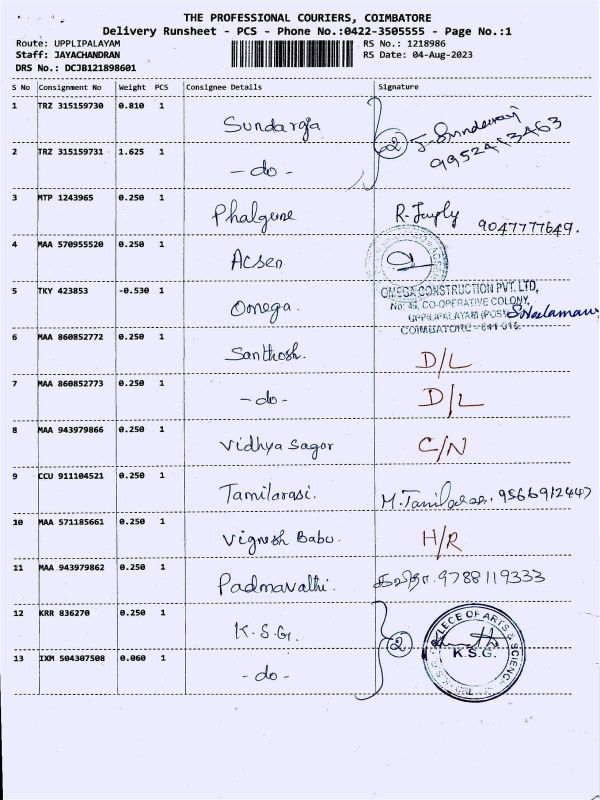 THE PROFESSIONAL COURIERS, COIMBATORE
Delivery Runsheet - PCS - Phone No.:0422-3505555 - Page No.:1
Route: UPPLIPALAYAM RS No.: 1218986
Staff: JAYACHANDRAN RS Date: 04-Aug-2023
DRS No.: DCJB121898601
S No Consignment No Weight PCS Consignee Details Signature
1 TRZ 315159730 0.810 1 Sundaraja
2 J. Sundarraj
9952413463
2 TRZ 315159731 1.625 1 - do -
3 MTP 1243965 0.250 1 Phalgune 9047777649.
4 MAA 570955520 0.250 1 Acsen
5 TKY 423853 -0.530 1 Omega.
OMEGA CONSTRUCTION PVT. LTD,
No: 49, CO-OPERATIVE COLONY,
UPPILIPALAYAM (POST)
COIMBATORE - 641 015.
6 MAA 860852772 0.250 1 Santhosh. D/L
7 MAA 860852773 0.250 1 - do - D/L
8 MAA 943979866 0.250 1 Vidhya Sagar C/N
9 CCU 911104521 0.250 1 Tamilarasi. M. Tamilarasi. 9566912447
10 MAA 571185661 0.250 1 Vignesh Babu. H/R
11 MAA 943979862 0.250 1 Padmavathi. கவிதா. 9788119333
12 KRR 836270 0.250 1 K.S.G.
2 COLLEGE OF ARTS & SCIENCE
K.S.G.
13 IXM 504307508 0.060 1 - do -